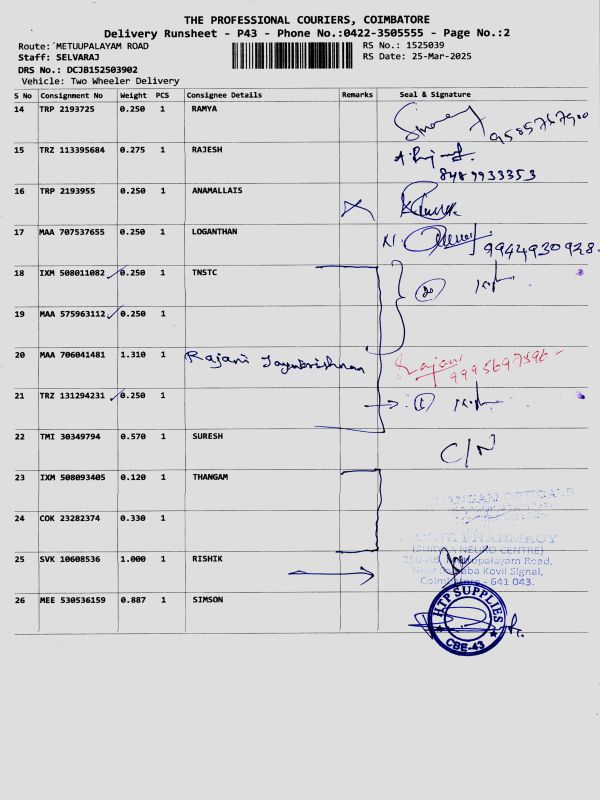 THE PROFESSIONAL COURIERS, COIMBATORE
Delivery Runsheet - P43 - Phone No.:0422-3505555 - Page No.:2
Route: METUUPALAYAM ROAD RS No.: 1525039
Staff: SELVARAJ RS Date: 25-Mar-2025
DRS No.: DCJB152503902
Vehicle: Two Wheeler Delivery
S No Consignment No Weight PCS Consignee Details Remarks Seal & Signature
14 TRP 2193725 0.250 1 RAMYA
9585767900
15 TRZ 113395684 0.275 1 RAJESH
8489933353
16 TRP 2193955 0.250 1 ANAMALLAIS
17 MAA 707537655 0.250 1 LOGANTHAN
9944930928
18 IXM 508011082 0.250 1 TNSTC
19 MAA 575963112 0.250 1
20 MAA 706041481 1.310 1 Rajani Jayakrishnan Rajani
9995697596
21 TRZ 131294231 0.250 1
22 TMI 30349794 0.570 1 SURESH C/N
23 IXM 508093405 0.120 1 THANGAM
24 COK 23282374 0.330 1
PHARMACY
25 SVK 10608536 1.000 1 RISHIK
NEURO CENTRE)
Road,
Kovil Signal,
641 043.
26 MEE 530536159 0.887 1 SIMSON
HTP SUPPLIES
CBE-43